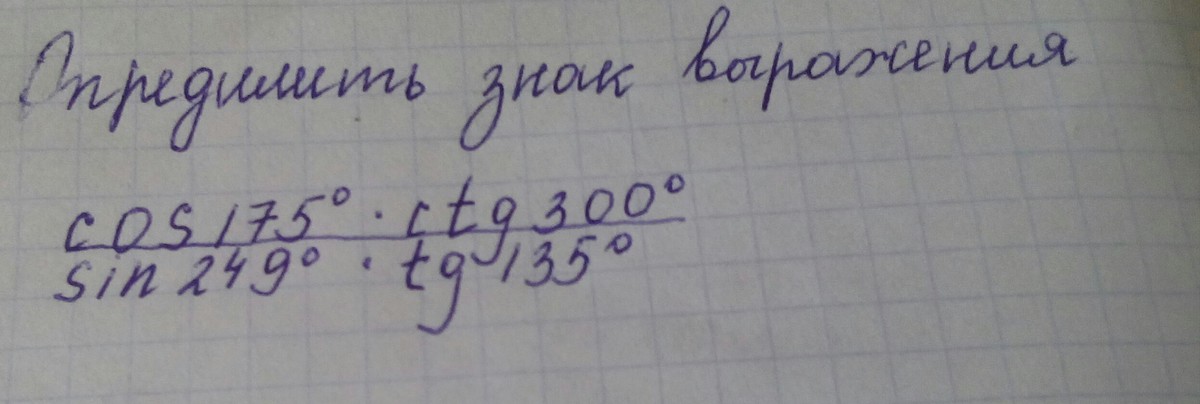 Опредилить знак выражения
cos 175° · ctg 300°
sin 249° · tg 135°